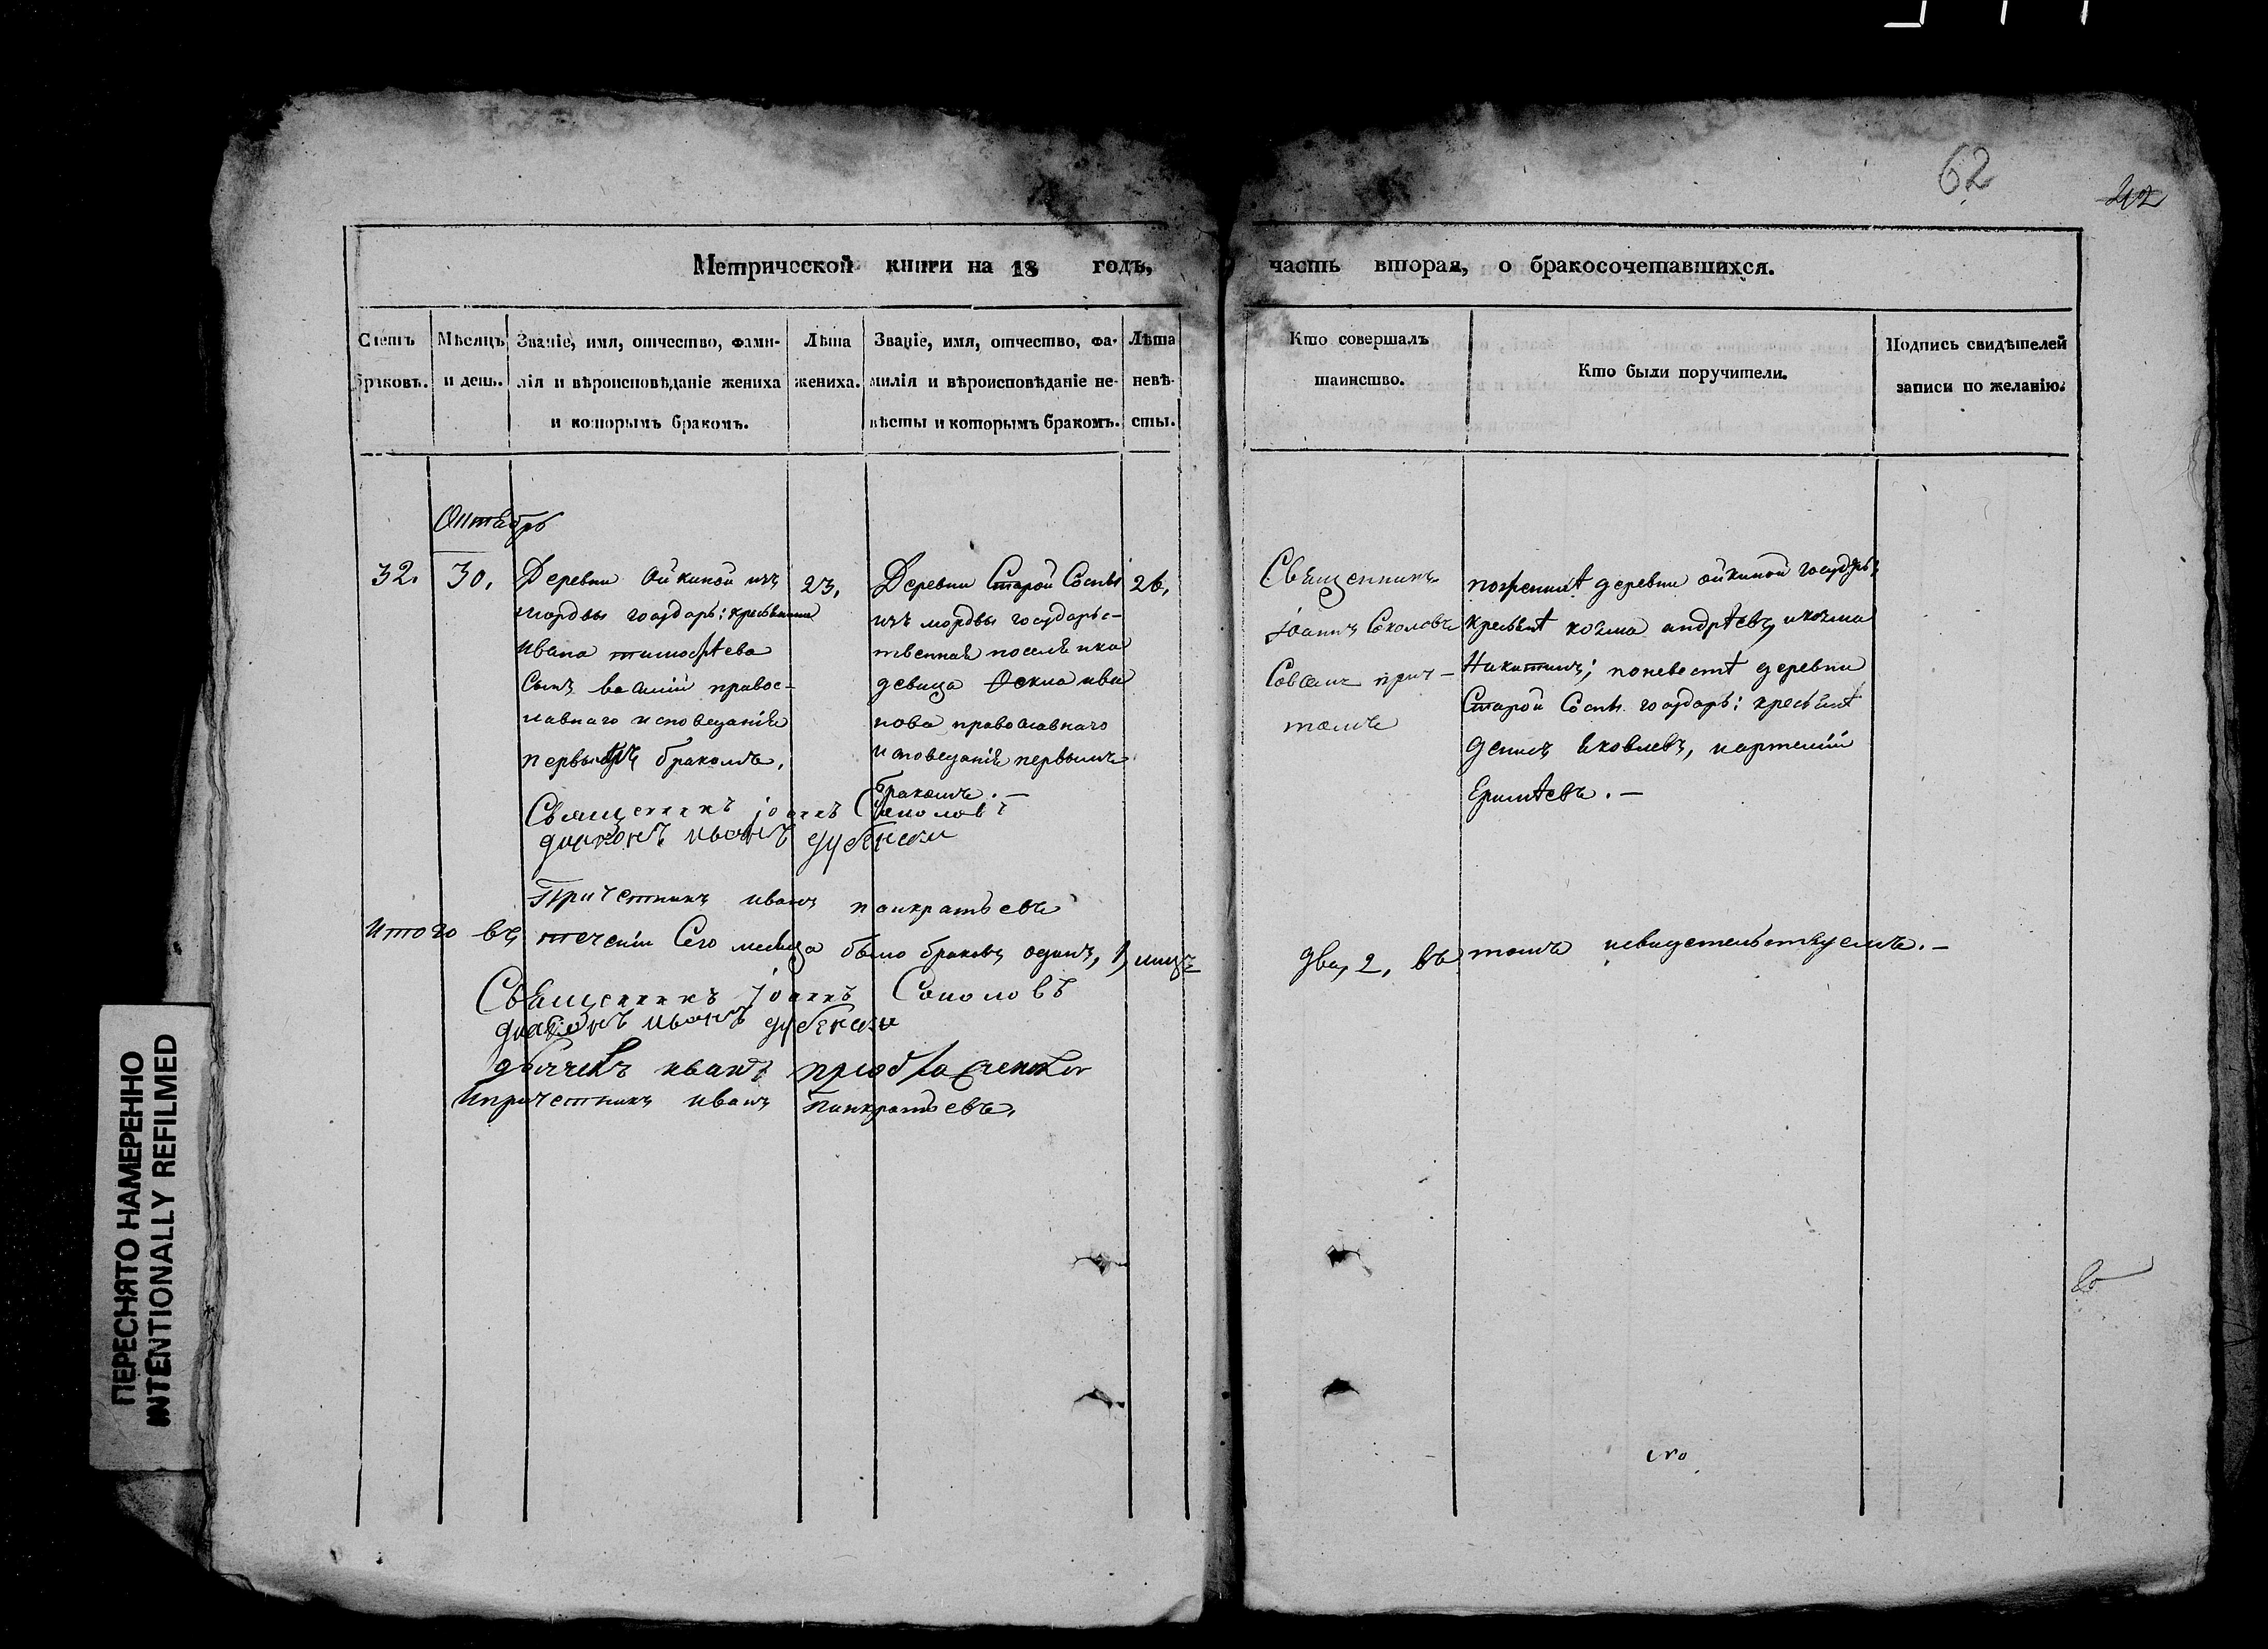 62
42
Метрической книги на 18 годъ, часть вторая, о бракосочетавшихся.
Счетъ браковъ.
Мѣсяцъ и день.
Званіе, имя, отчество, фами-
лія и вѣроисповѣданіе жениха
и которымъ бракомъ.
Лѣта
жениха.
Званіе, имя, отчество, фа-
милія и вѣроисповѣданіе не-
вѣсты и которымъ бракомъ.
Лѣта
невѣ-
сты.
Кто совершалъ
таинство.
Кто были поручители.
Подпись свидѣтелей
записи по желанію.
Октябрь
32.
30.
Деревни Ойкиной изъ
мордвы государь: крестьянина
Ивана тимофѣева
Сынъ василій правос-
лавнаго исповеданія
первымъ бракомъ.
23.
Деревни Старой Сосны
изъ мордвы государс-
твенная поселянка
девица Фекла ива
нова православнаго
исповеданія первымъ
бракомъ. —
26.
Священникъ
іоаннъ Соколовъ
Совсемъ прич-
томъ
пожених̀ѣ деревни ойкиной государь:
крестьянѣ козма андрѣевъ, икозма
Никитинъ; поневестѣ деревни
Старой Сосны государь: крестьянѣ
денисъ яковлевъ, ипартеній
Ермѣевъ. —
Священникъ іоаннъ Соколовъ
диаконъ иванъ дубенски
Причетникъ иванъ панкратьевъ
Итого въ течении Сего месяца было браковъ одинъ, 1, лицъ два, 2, въ томъ исвидетельствуемъ. —
Священникъ іоаннъ Соколовъ
диаконъ иванъ дубенски
дьячекъ иванъ
Ипричетникъ иванъ Панкратьевъ.
ПЕРЕСНЯТО НАМЕРЕННО
INTENTIONALLY REFILMED